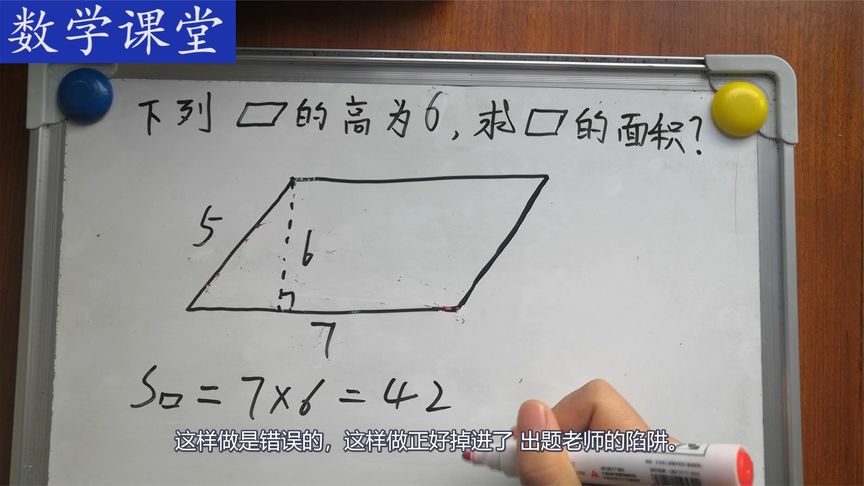 数学课堂
下列▱的高为6,求▱的面积?
5
6
7
S▱=7×6=42
这样做是错误的，这样做正好掉进了 出题老师的陷阱。